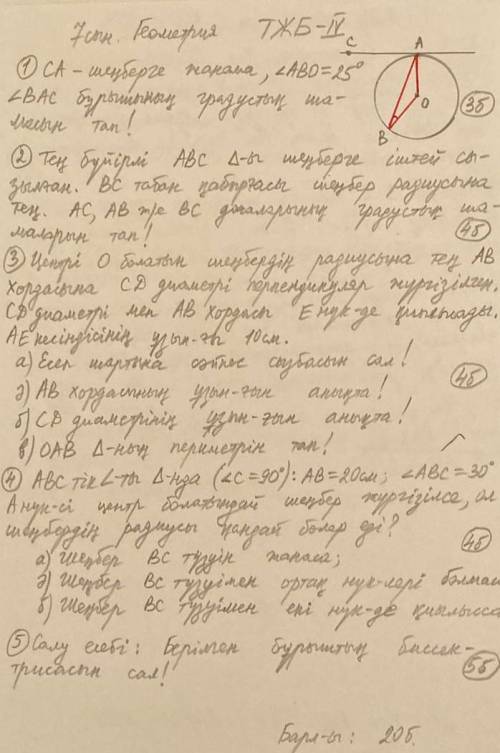 7сын. Геометрия ТЖБ-IV
C A
O
B
① CA - шеңберге жанама, ∠ABO=25°
∠BAC бұрышының градустық ша-
масын тап! 3б
② Тең бүйірлі ABC Δ-ы шеңберге іштей сы-
зылған. BC табан қабырғасы шеңбер радиусына
тең. AC, AB және BC доғаларының градустық ша-
маларын тап! 4б
③ Центрі O болатын шеңбердің радиусына тең AB
хордасына CD диаметрі перпендикуляр жүргізілген.
CD диаметрі мен AB хордасы E нүк-де қиылысады.
AE кесіндісінің ұзын-ғы 10см.
а) Есеп шартына сәйкес сызбасын сал!
ә) AB хордасының ұзын-ғын анықта! 4б
б) CD диаметрінің ұзын-ғын анықта!
в) OAB Δ-ның периметрін тап!
④ ABC тік∠-ты Δ-нда (∠C=90°): AB=20см; ∠ABC=30°
A нүк-сі центр болатындай шеңбер жүргізілсе, ол
шеңбердің радиусы қандай болар еді?
а) Шеңбер BC түзуін жанаса; 4б
ә) Шеңбер BC түзуімен ортақ нүк-лері болмаса
б) Шеңбер BC түзуімен екі нүк-де қиылысса
⑤ Салу есебі: Берілген бұрыштың биссек-
трисасын сал! 5б
Барл-ы: 20б.